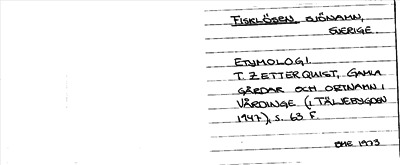 FISKLÖSEN SJÖNAMN,
SVERIGE.
ETYMOLOGI.
T. ZETTERQUIST, GAMLA
GÅRDAR OCH ORTNAMN I
VÅRDINGE (I TÄLJEBYGDEN
1947), S. 63 F.
1973